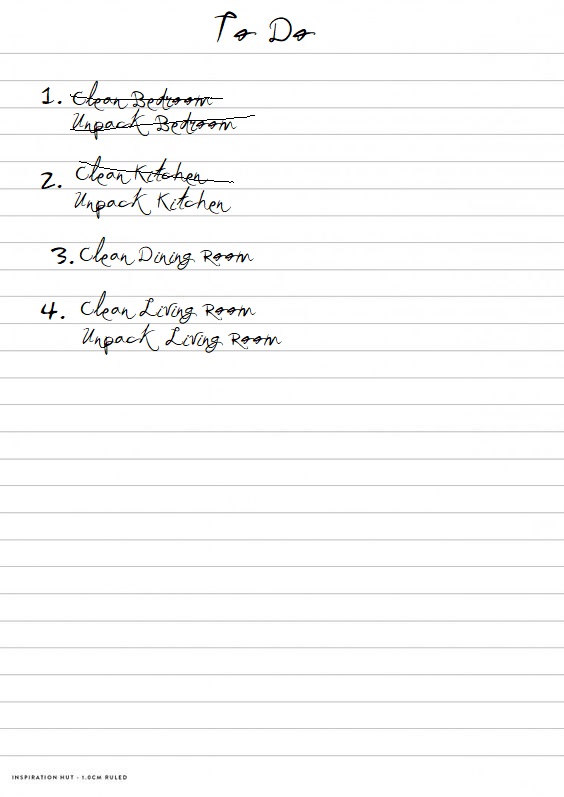 To Do
1. Clean Bedroom
Unpack Bedroom
2. Clean Kitchen
Unpack Kitchen
3. Clean Dining Room
4. Clean Living Room
Unpack Living Room
INSPIRATION HUT - 1.0CM RULED